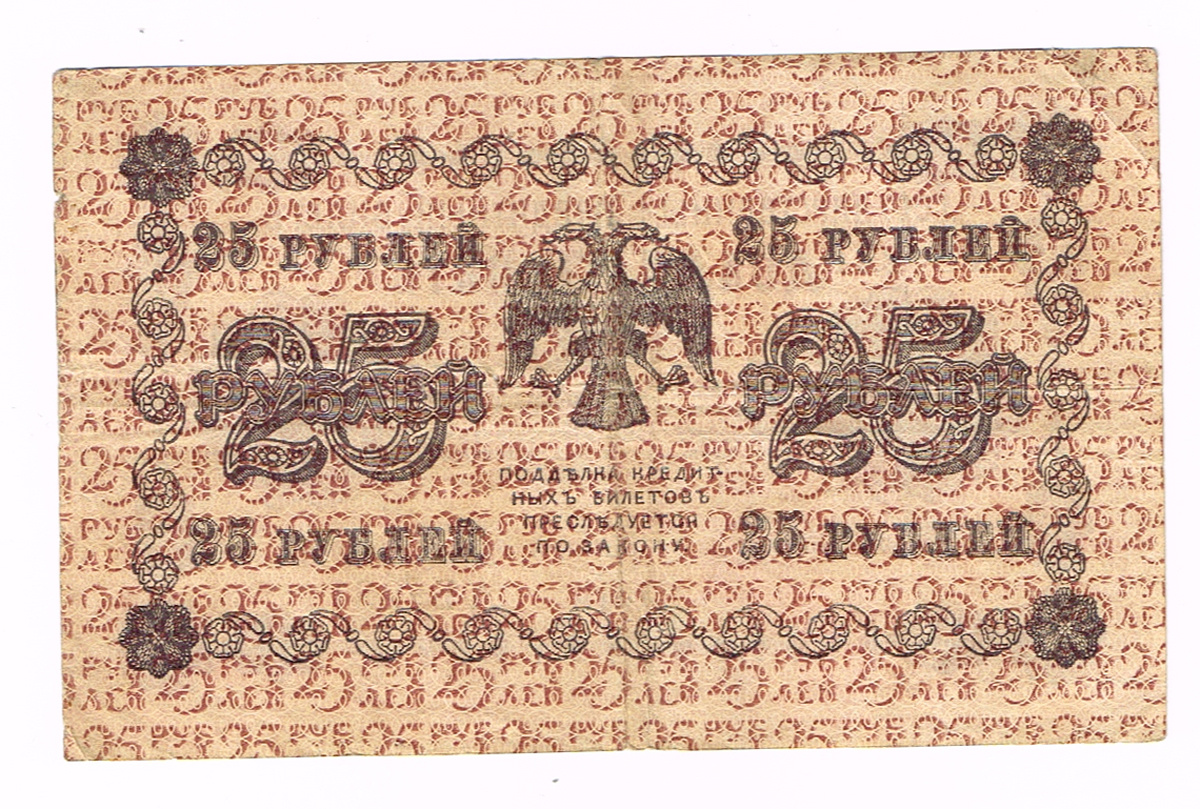 25 РУБЛЕЙ
25 РУБЛЕЙ
25
РУБЛЕЙ
25
РУБЛЕЙ
ПОДДѢЛКА КРЕДИТ-
НЫХЪ БИЛЕТОВЪ
ПРЕСЛѢДУЕТСЯ
ПО ЗАКОНУ
25 РУБЛЕЙ
25 РУБЛЕЙ